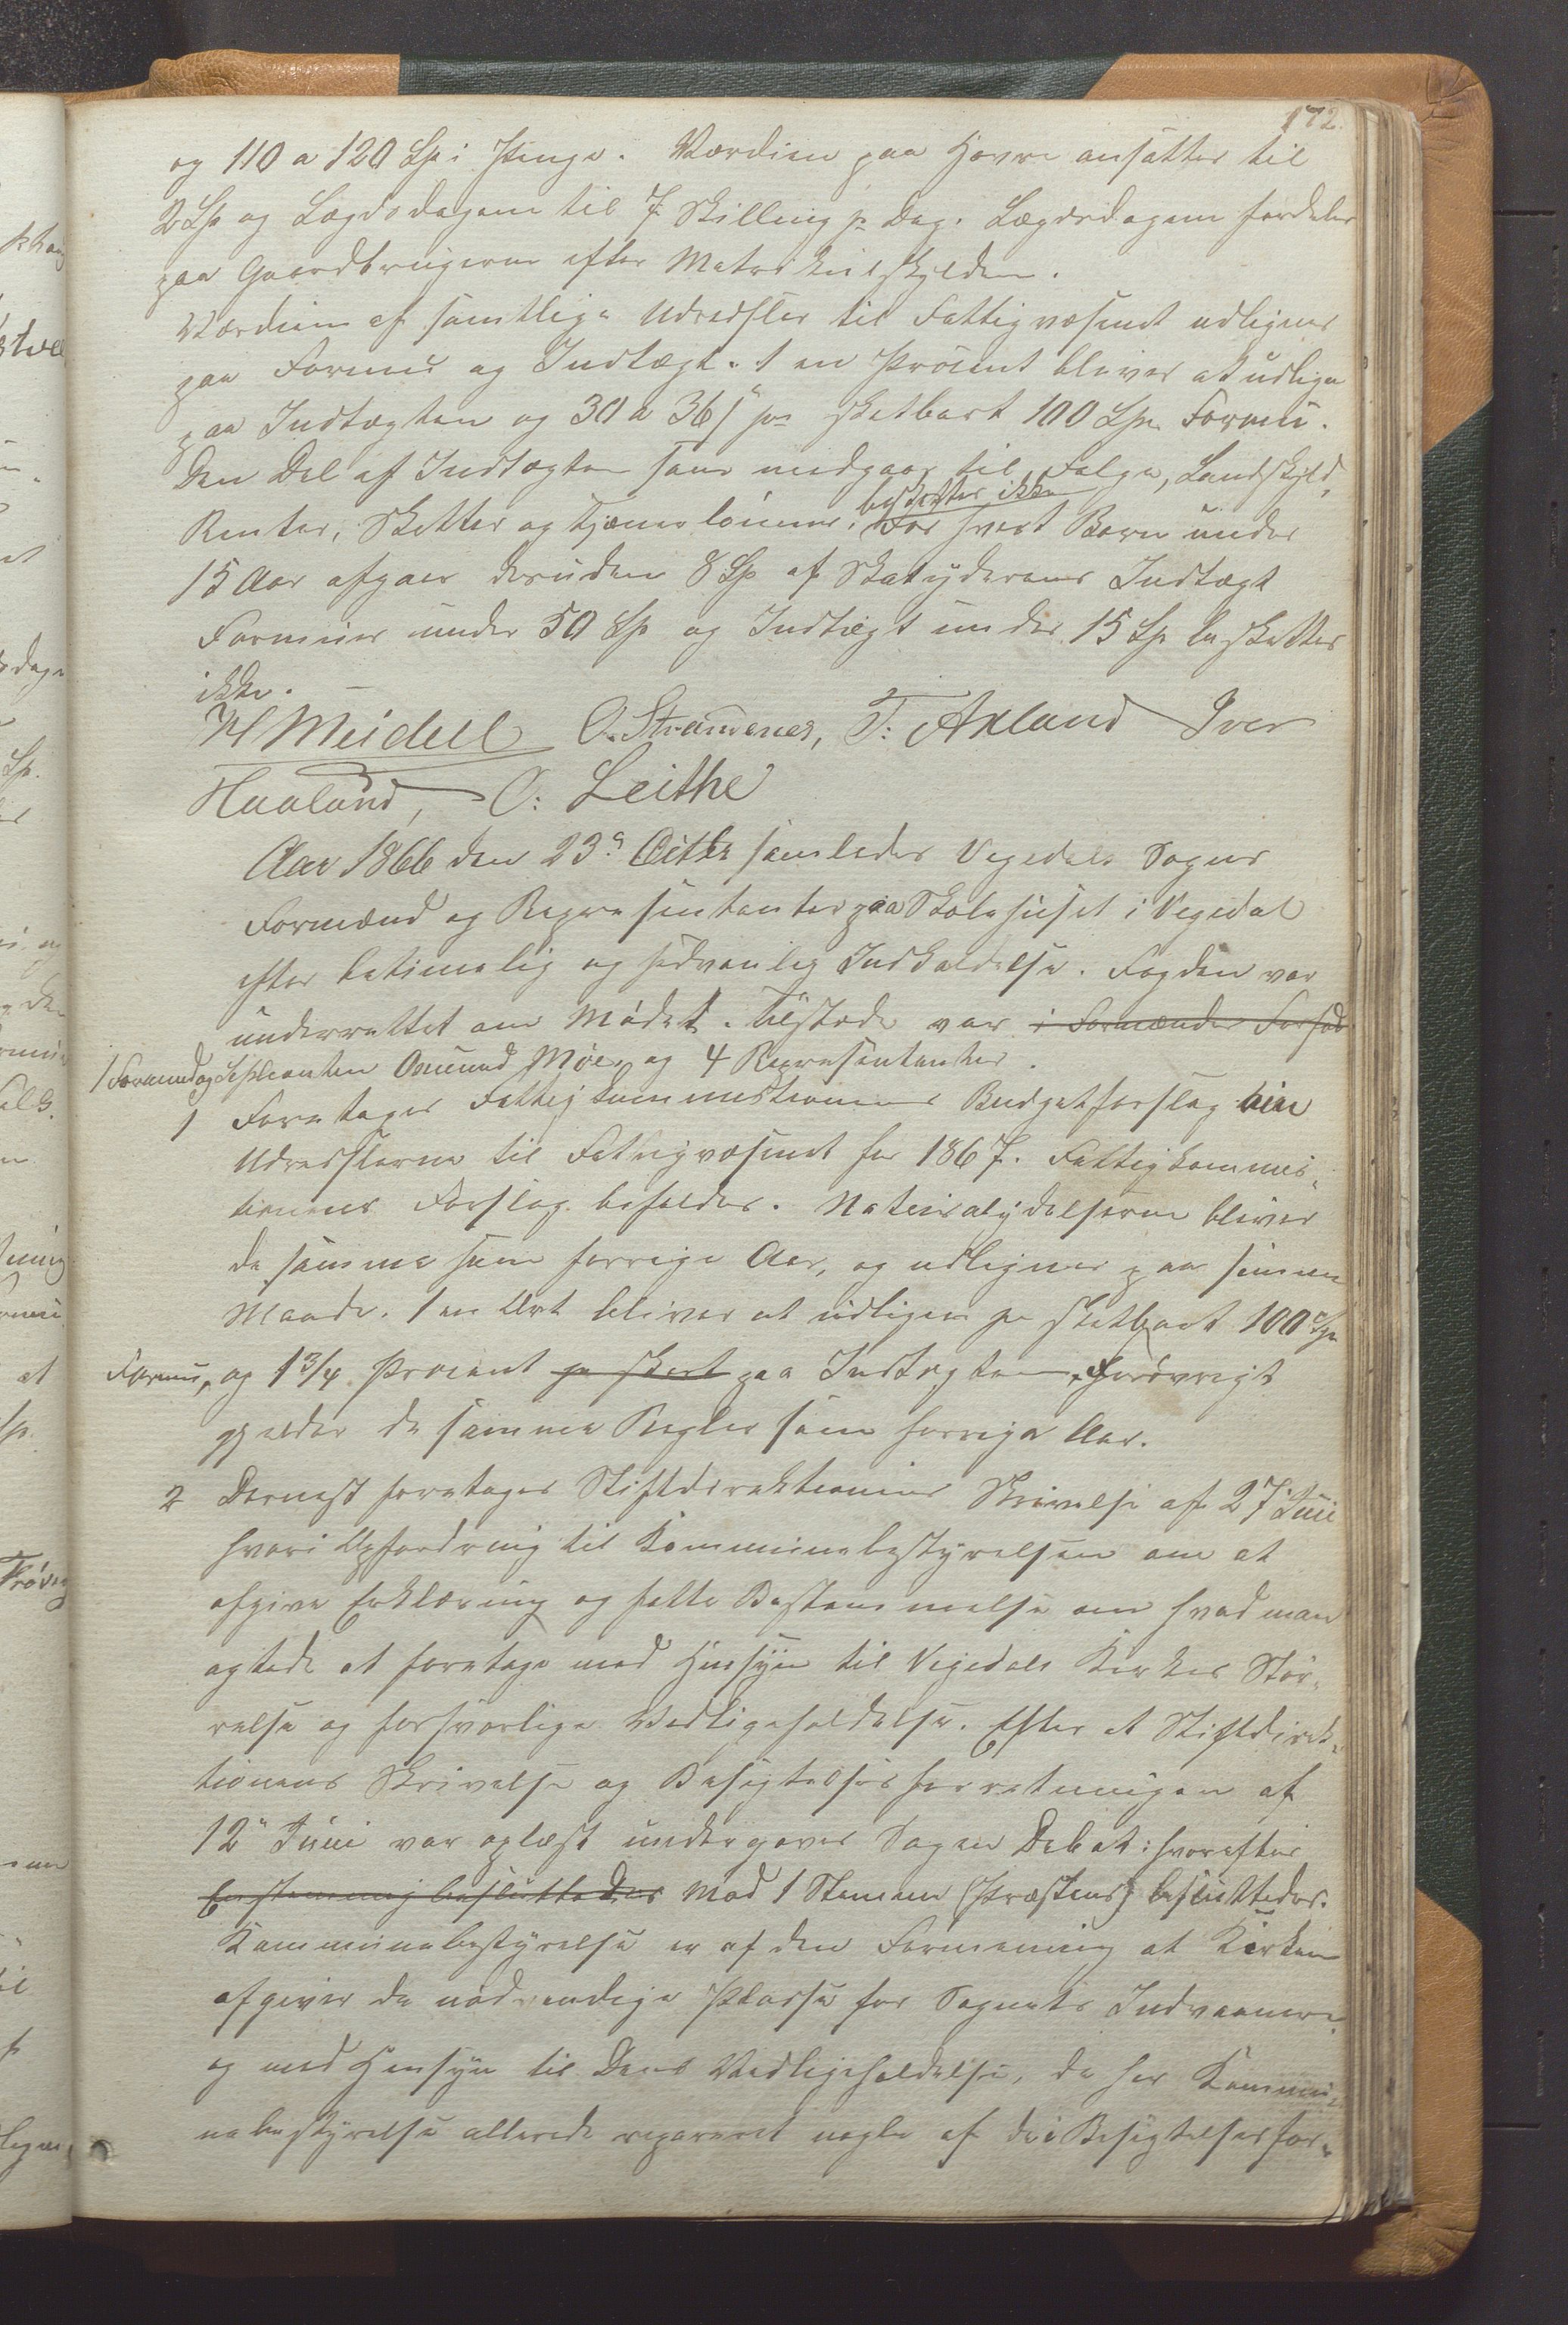 172.
og 110 a 120 Sp i Penge. Værdien paa Havre ansættes til
2 Sp og Lægdsdagene til 7 Skilling pr Dag. Lægdsdagene fordeles
paa Gaardbrugerne efter Matrikulskylden.
Værdien af samtlige Udredsler til Fattigvæsenet udlignes
paa Formue og Indtægt. 1 en Procent bliver at udligne
paa Indtægten og 30 a 36 s pr skatbart 100 Spr Formue.
Den Del af Indtægten som medgaar til Følge, Landskyld,
Renter, Skatter og Tjenerlønner, beskattes ikke For hvert Barn under
15 Aar afgaar desuden 8 Sp af Skatyderens Indtægt
Formuer under 50 Sp og Indtægt under 15 Sp beskattes
ikke.
H Meidell O. Strandenes, T: Axland Iver
Haaland, O: Leithe
Aar 1866 den 23de Octbr samledes Vigedals Sogns
Formænd og Repræsentanter paa Skolehuset i Vigedal
efter betimelig og sædvanlig Indkaldelse. Fogden var
underrettet om Mødet. Tilstede var i Formænder Forfod
1 Formand og Supleanten Omund Møe, og 4 Repræsentanter.
1 Foretages Fattigkommissionens Budgetforslag
Udredslerne til Fattigvæsenet for 1867. Fattigkommis-
sionens Forslag beholdes. Naturalydelserne bliver
de samme som forrige Aar, og udlignes paa samme
Maade. 1 en Ort bliver at udligne pr skatbart 100 Spr
Formue, og 1 3/4 Procent pr skort paa Indtægten. Forøvrigt
gjælder de samme Regler som forrige Aar.
2 Dernæst foretages Stiftdirektionens Skrivelse af 27 Juni
hvori Opfordring til Kommunebestyrelsen om at
afgive Erklæring og fatte Bestemmelse om hvad man
agtede at foretage med Hensyn til Vigedals Kirkes Stør-
relse og forsvarlige Vedligeholdelse. Efter at Stiftdirek-
tionens Skrivelse og Besigtelsesforretningen af
12te Juni var oplæst undergaves Sagen Debat: hvorefter
Enstemmig besluttedes Mod 1 Stemme (Præstens) besluttedes.
Kommunebestyrelse er af den Formening at Kirken
afgiver de nødvendige Pladse for Sognets Indvaanere
og med Hensyn til Dens Vedligeholdelse, da har Kommu-
nebestyrelse allerede repareret nogle af de i Besigtelsesfor-